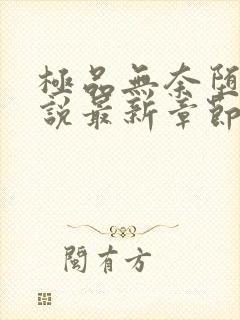 極品無奈墮
說最新章節
閩有方